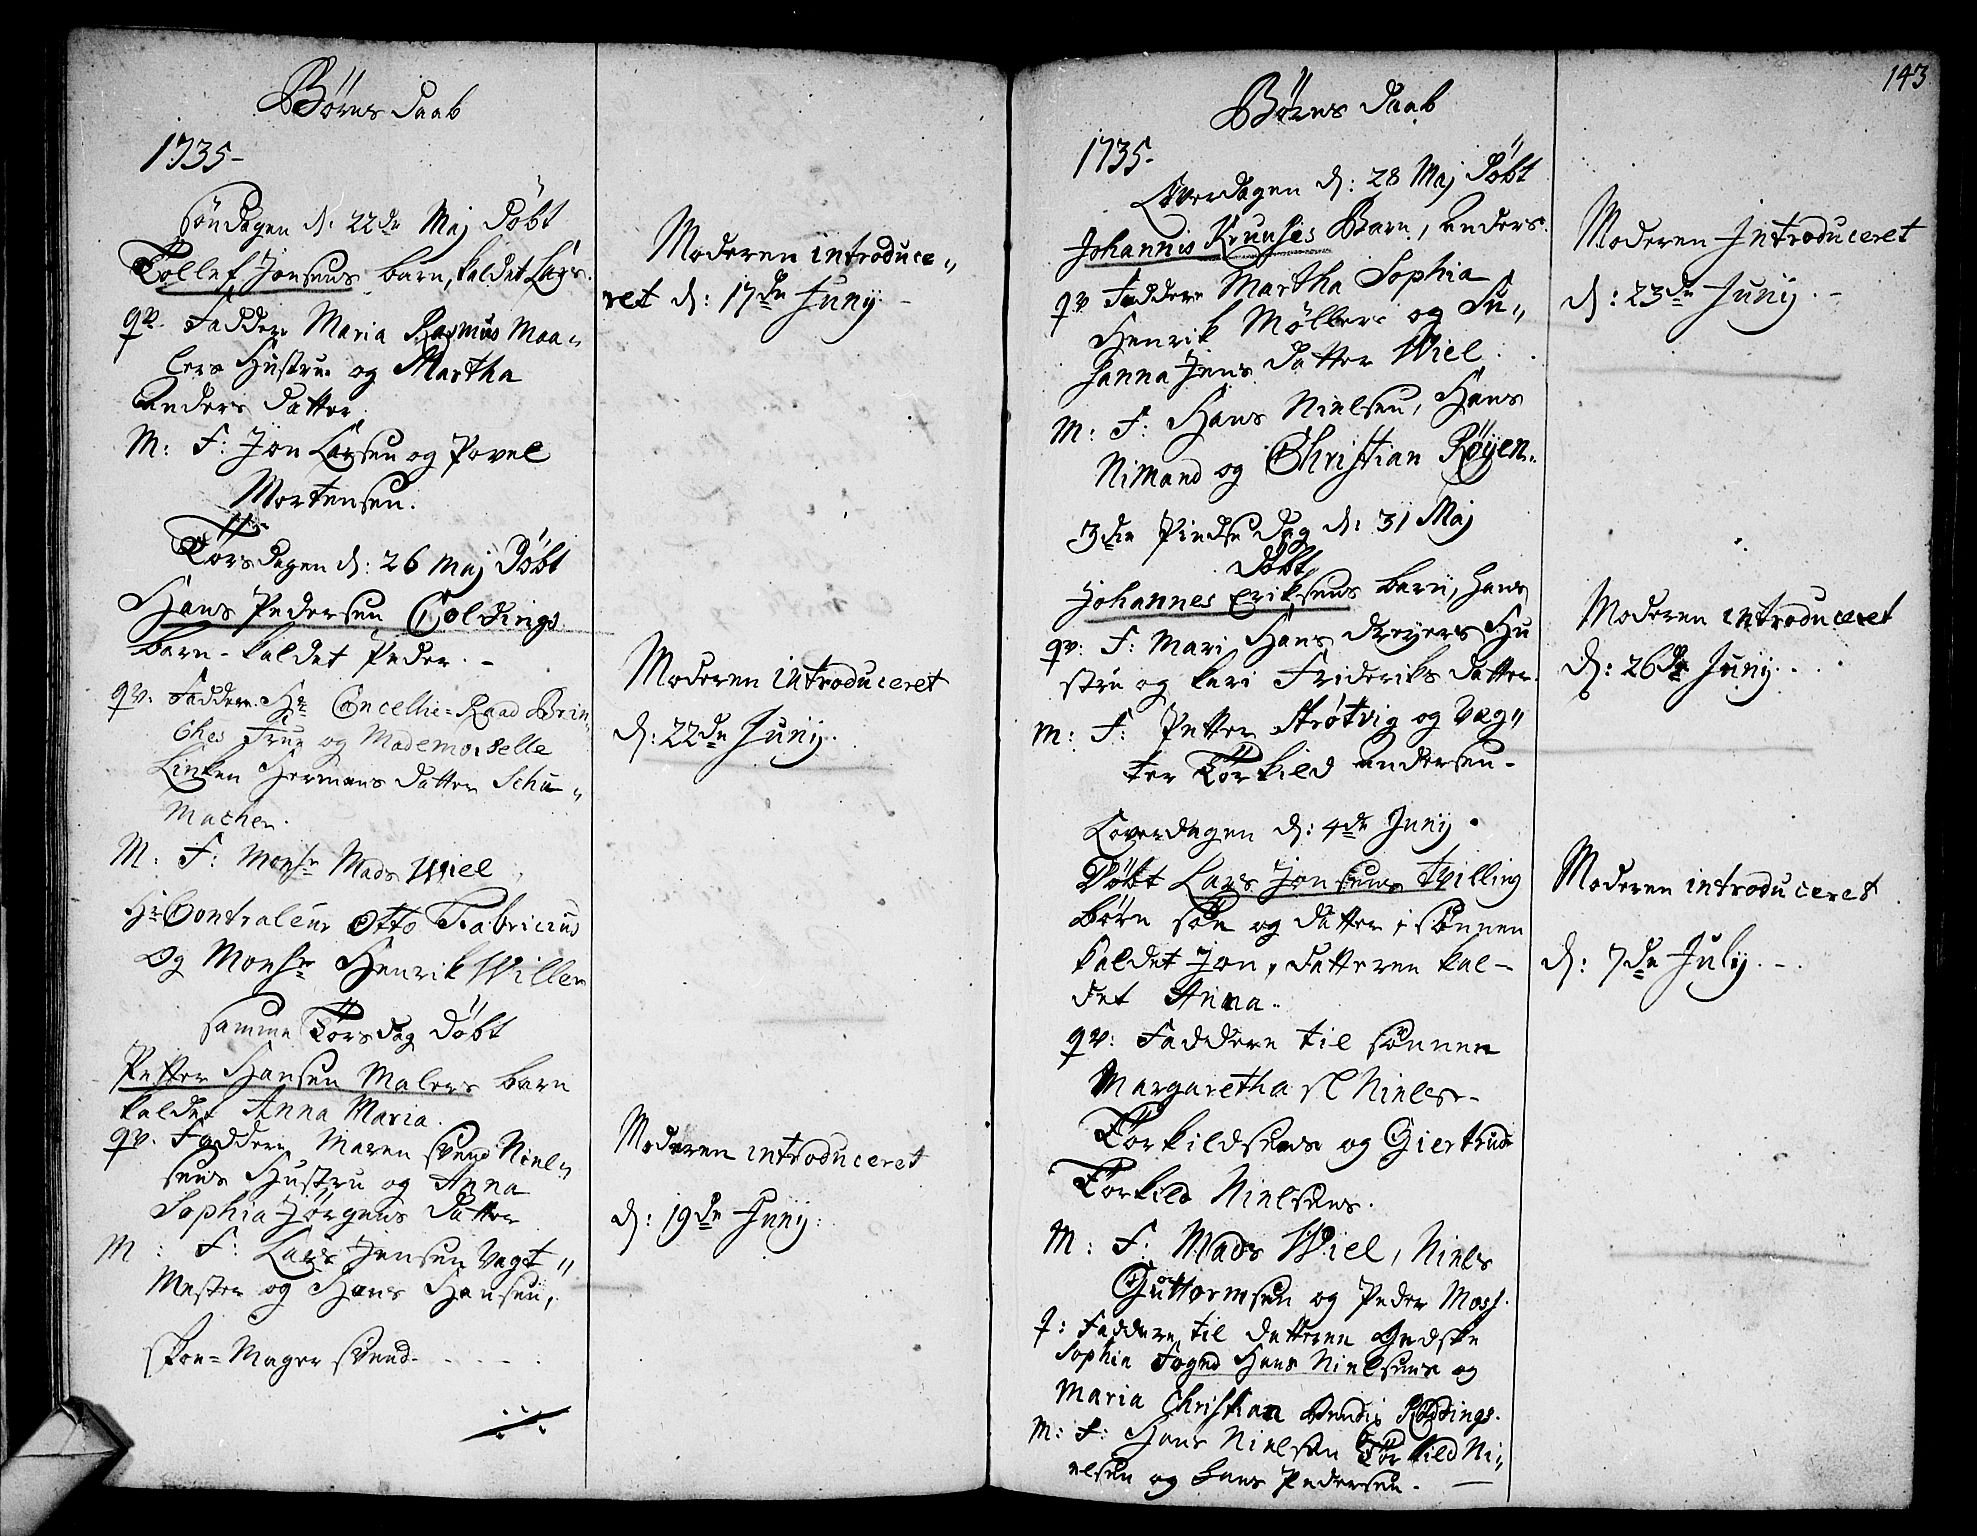 Børns Daab
1735-
Söndagen d: 22de Maj Döbt
Tollef Jonsens barn, kaldet Lars.
qv. Faddere Maria Rasmus Maa„
lers Hustrue og Martha
Anders Datter.
M: F: Jon Larsen og Povel
Mortensen.
Torsdagen d: 26 Maj Döbt
Hans Pedersen Coldings
barn - kaldet Peder. -
qv. Faddere Hr Cancellie-Raad Brin„
ches Frue og Mademoiselle
Linken Hermans Datter Schu„
macher.
M: F: Monsr Mads Wiel
Hr Contraleur Otto Fabricius
Og Monsr Henrik Willem
samme Torsdag Döbt
Petter Hansen Malers barn
kaldet Anna Maria.
qv. Faddere Maren Svend Niel„
sens Hustru og Anna
Sophia Jørgens Datter
M: F: Lars Jensen Vagt„
Mester og Hans Hansen,
Skoe-Mager Svend.
Moderen introduce„
ret d: 17de Junij. -
Moderen introduceret
d: 22de Junij.
Moderen introduceret
d: 19de Junij:
143
Børns Daab
1735.
Løverdagen d: 28 Maj Döbt
Johannis Krunses Barn, Anders.
qv Faddere Martha Sophia
Henrik Møllers og Su„
sanna Jens Datter Wiel.
M: F: Hans Nielsen, Hans
Nimand og Christian Röyen.
3die Pindse Dag d: 31 Maj
Döbt
Johannes Eriksens barn, Hans
qv: F: Mari Hans Dreyers Hu
stru og Kari Frideriks Datter.
M: F: Petter Strøtvig og Væg„
ter Torkild Andersen -
Løverdagen d: 4de Junij.
Döbt Lars Jonsens Tvilling
Børn Søn og Datter, Sønnen
kaldet Jon, Datteren kal-
det Anna.
qv: Faddere til Sønnen
Margaretha Sl Niels-
Torkildsens og Giertrud
Torkild Nielsens.
M: F: Mads Wiel, Niels
Guttormsen og Peder Moss.
q: Faddere til Datteren Giedske
Sophia Foged Hans Nielsens og
Maria Christian Bendix Rødings.
M: F: Hans Nielsen Torkild Ni„
elsen og Hans Pedersen. -
Moderen Introduceret
d: 23de Junij. -
Moderen introduceret
d: 26de Junij.
Moderen introduceret
d: 7de Julij. -